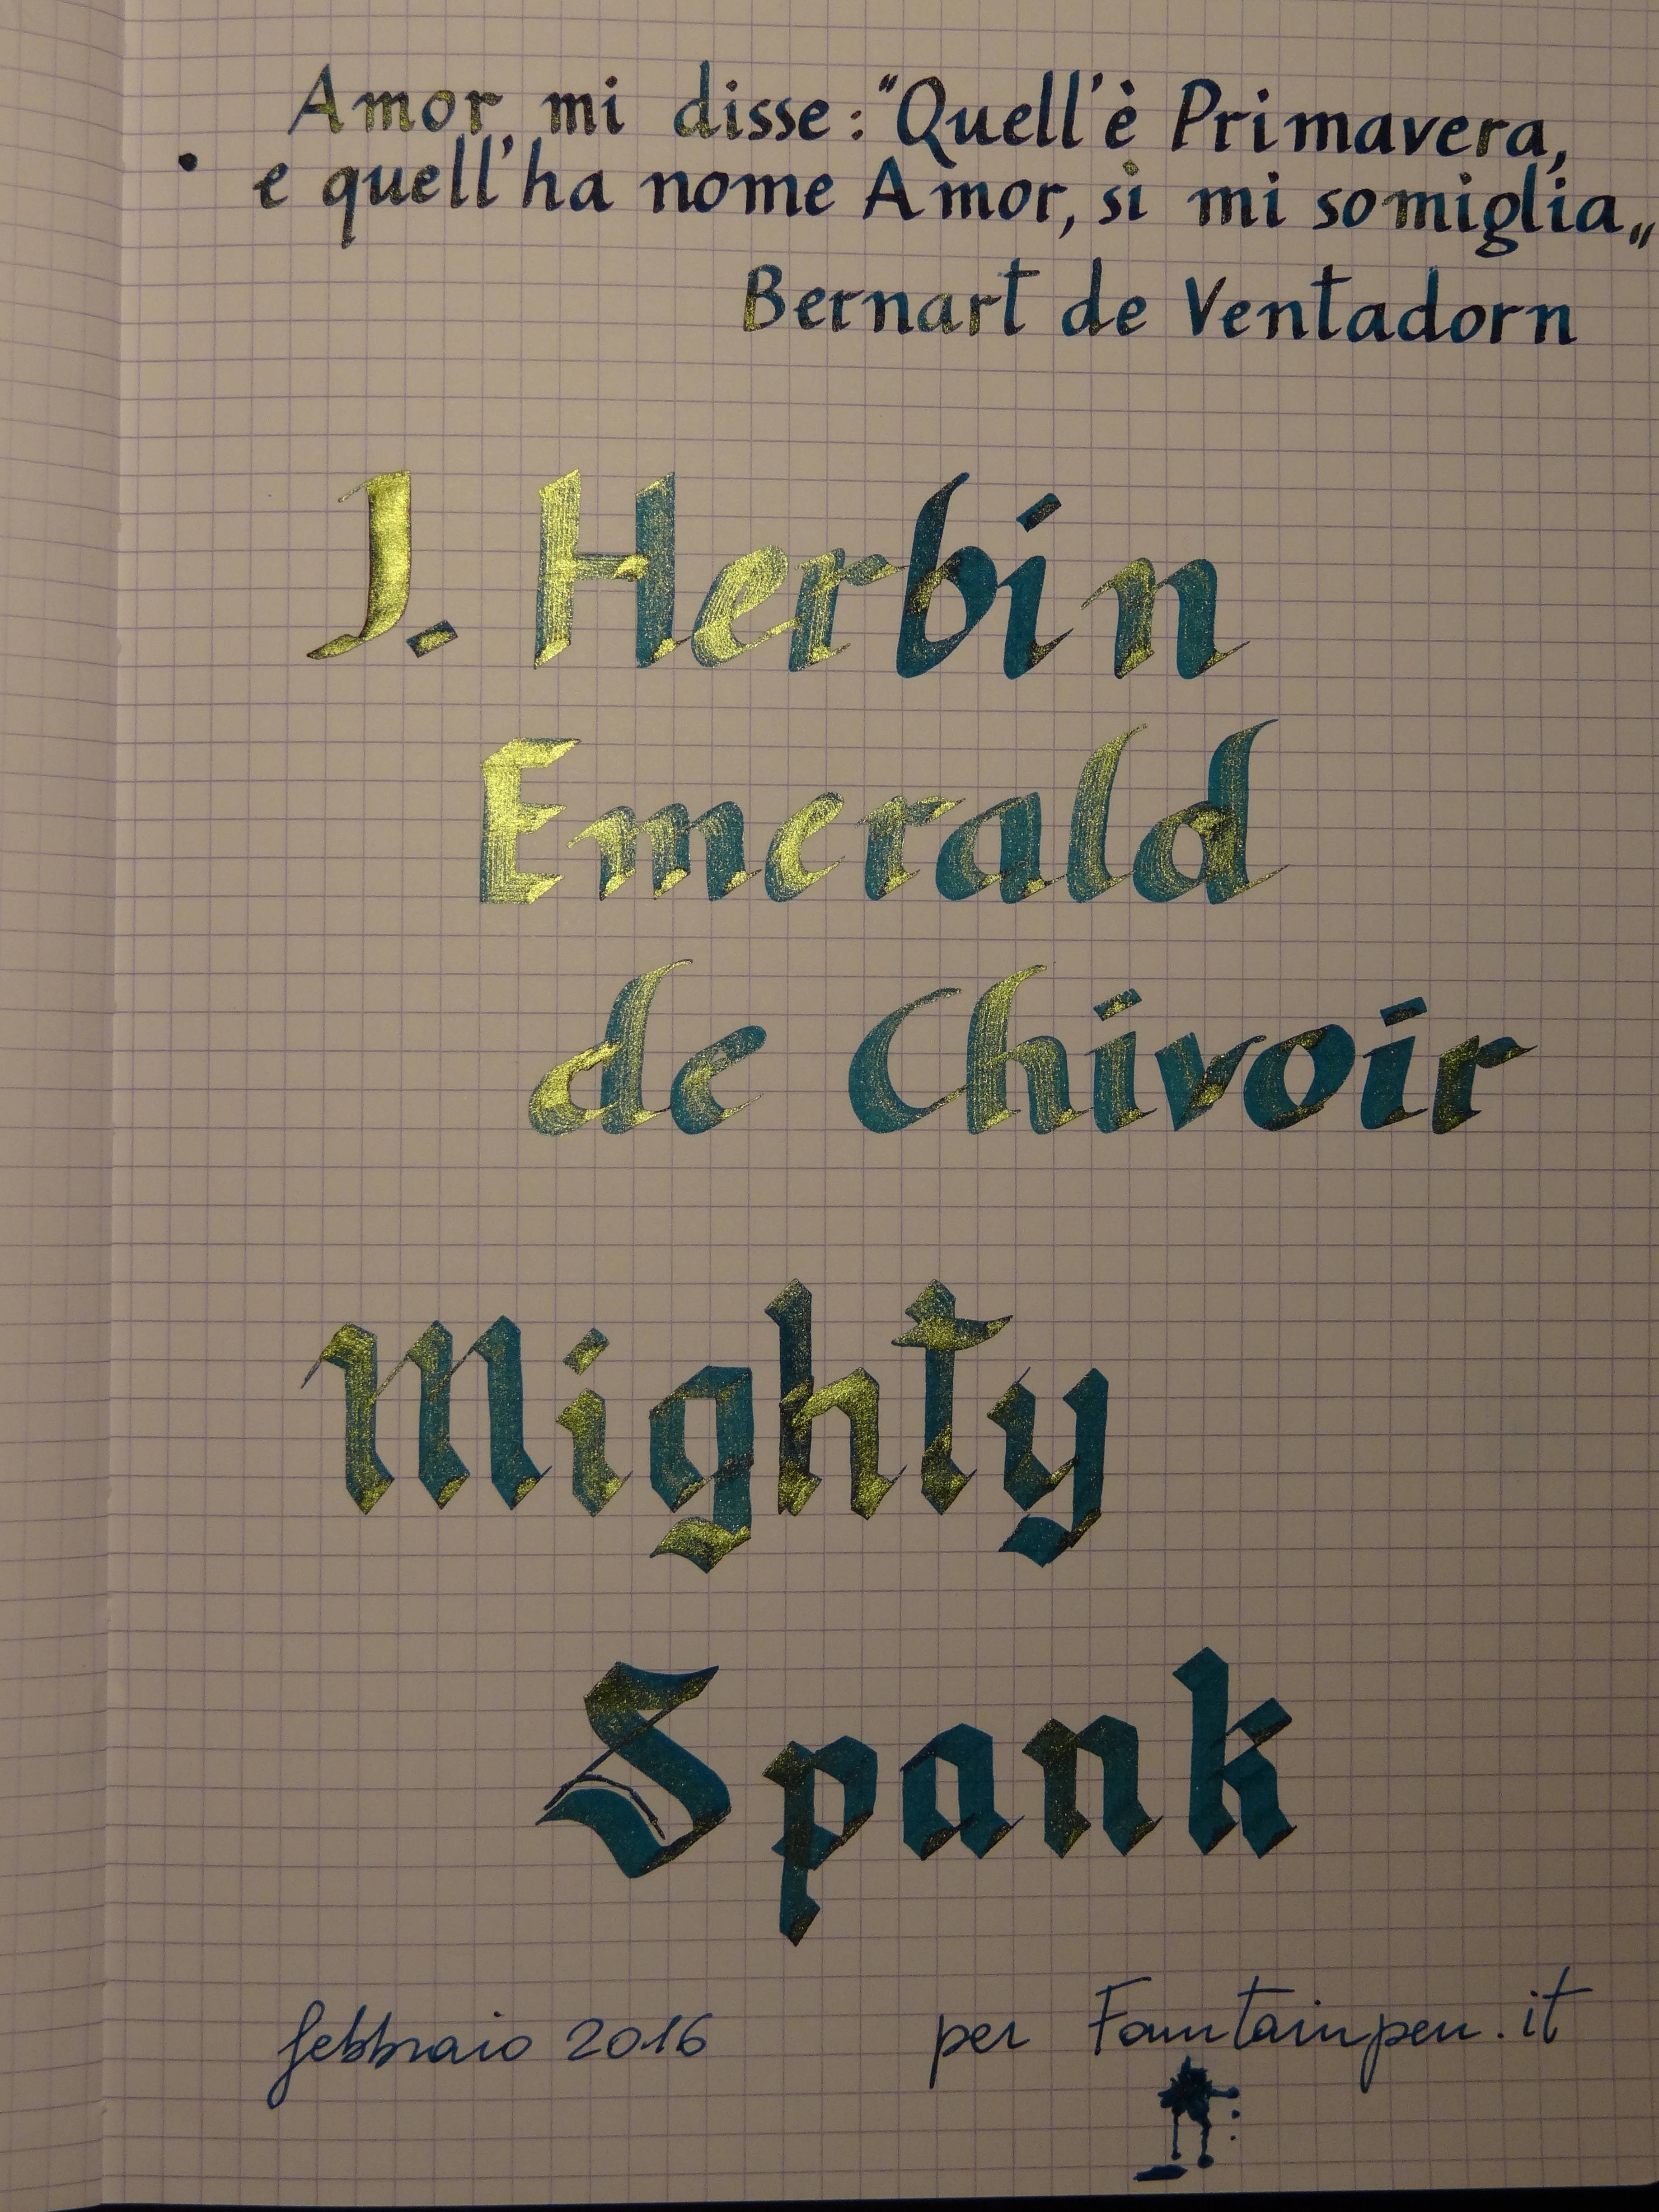 Amor, mi disse: "Quell'è Primavera,
e quell'ha nome Amor, sì mi somiglia„
Bernart de Ventadorn
J. Herbin
Emerald
de Chivoir
Mighty
Spank
febbraio 2016 per Fountainpen.it